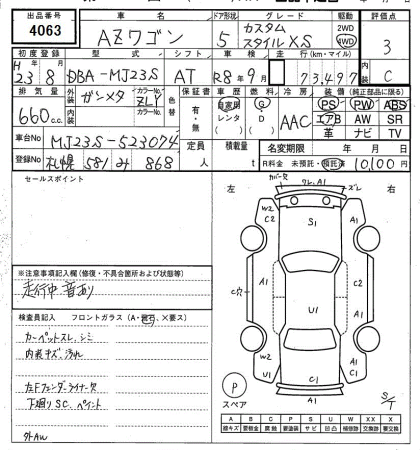 出品番号 車名 ドア形状 グレード 駆動 評価点
4063 AZワゴン 5 カスタムスタイルXS 2WD 4WD 3
初度登録 型式 シフト 車検 走行(km・マイル) 内装
H23 8 DBA-MJ23S AT R8年9月 73,497 C
排気量 外装 カラーNo. 色替 保証書 車歴 燃料 冷房 装備(純正部品に限る)
660c.c. ガンメタ ZLY 有・無 自家用 レンタ G D AAC PS PW ABS
内装 カラーNo. エアB AW SR
革 ナビ TV
車台No MJ23S-523074 定員 人 積載量 t 名変期限 年 月 日
登録No 札幌 581 み 868 R料金 未預託・預託済 10,100円
セールスポイント
左 右
カバー欠 ワレ、A1 ズレ
W2 C2 S1 A1
※注意事項記入欄(修復・不具合箇所および状態等)
走行中音あり
C穴 A1 C2 A1
U1
検査員記入 フロントガラス(A・飛石、×要ス)
カーペットスレ、シミ
内装キズ、汚れ
W2 U1 C1 A1 C1 A1
左Fフェンダーライナー欠
下廻りSC、ペイント
P
スペア
S/T
外AW
A B C P S U W X XX
線キズ 要補修 腐食 要塗装 サビ 凹凸 補修跡 要交換 交換済